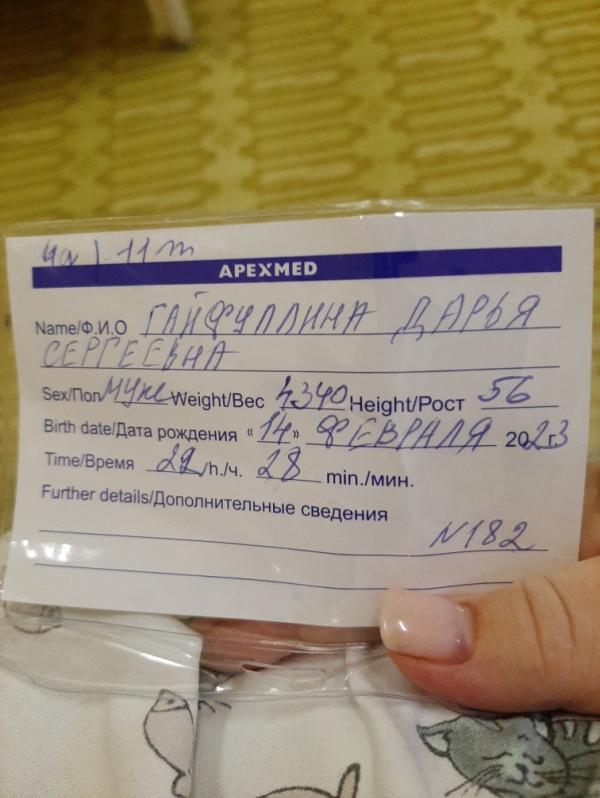 4д | 11 т
APEXMED
Name/Ф.И.О ГАЙФУЛЛИНА ДАРЬЯ
СЕРГЕЕВНА
Sex/Пол муж Weight/Вес 4340 Height/Рост 56
Birth date/Дата рождения «14» ФЕВРАЛЯ 2023
Time/Время 22 /h./ч. 28 min./мин.
Further details/Дополнительные сведения
N182